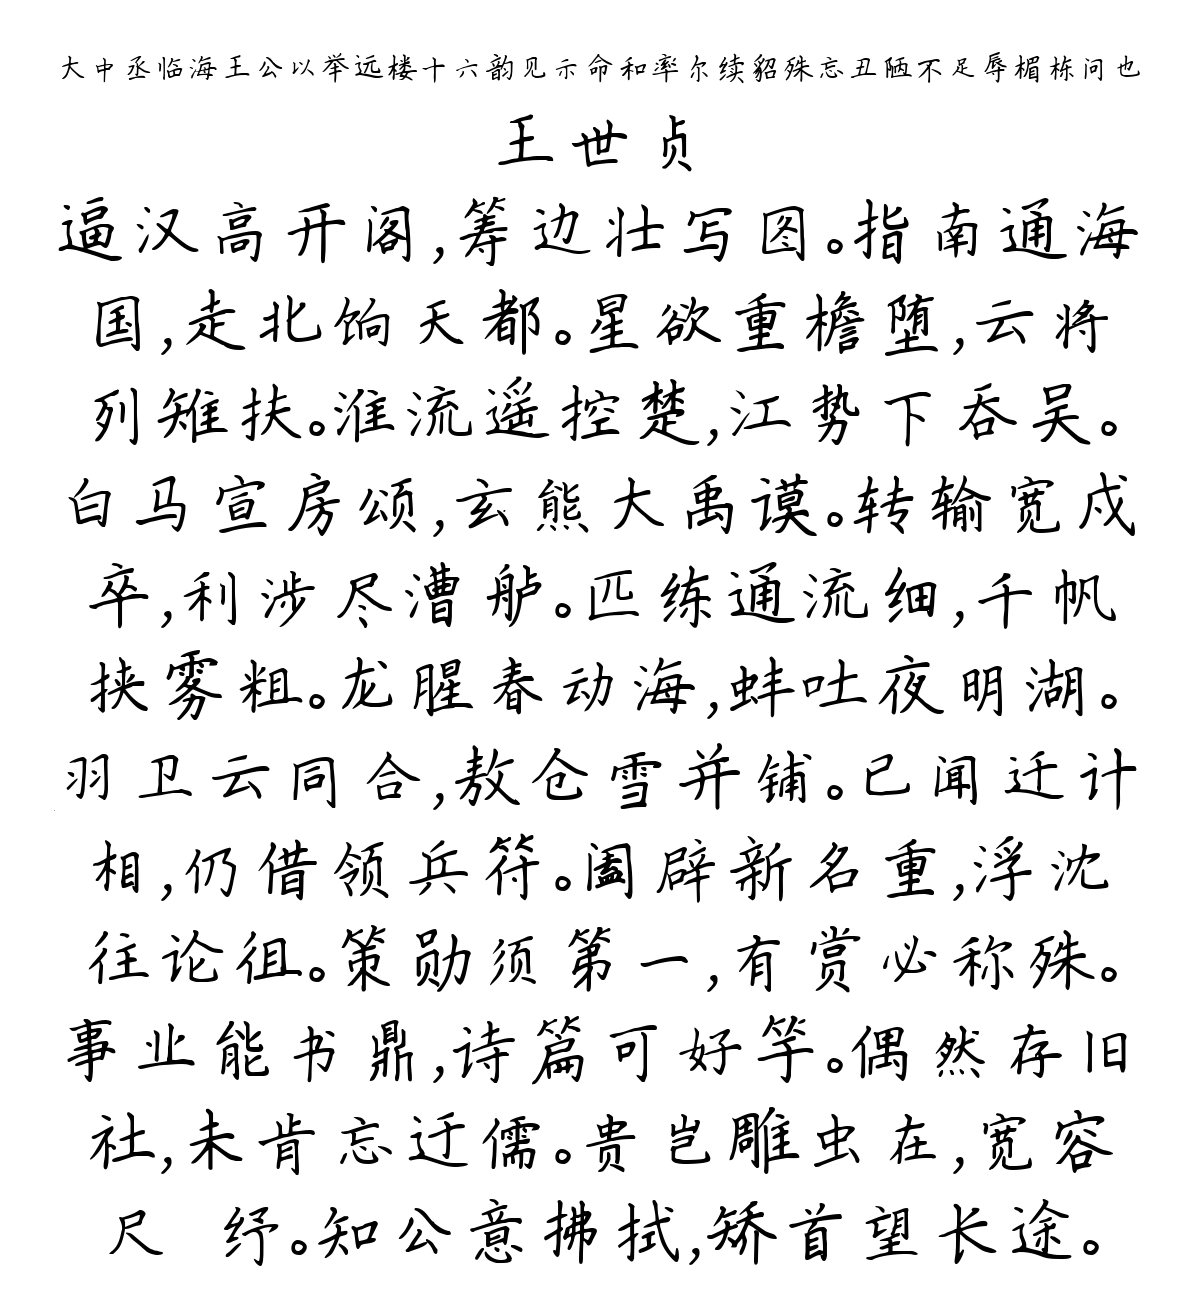 大中丞临海王公以举远楼十六韵见示命和率尔续貂殊忘丑陋不足辱楣栋问也
王世贞
逼汉高开阁,筹边壮写图。指南通海
国,走北饷天都。星欲重檐堕,云将
列雉扶。淮流遥控楚,江势下吞吴。
白马宣房颂,玄熊大禹谟。转输宽戍
卒,利涉尽漕舻。匹练通流细,千帆
挟雾粗。龙腥春动海,蚌吐夜明湖。
羽卫云同合,敖仓雪并铺。已闻迁计
相,仍借领兵符。阖辟新名重,浮沈
往论徂。策勋须第一,有赏必称殊。
事业能书鼎,诗篇可好竽。偶然存旧
社,未肯忘迂儒。贵岂雕虫在,宽容
尺 纾。知公意拂拭,矫首望长途。